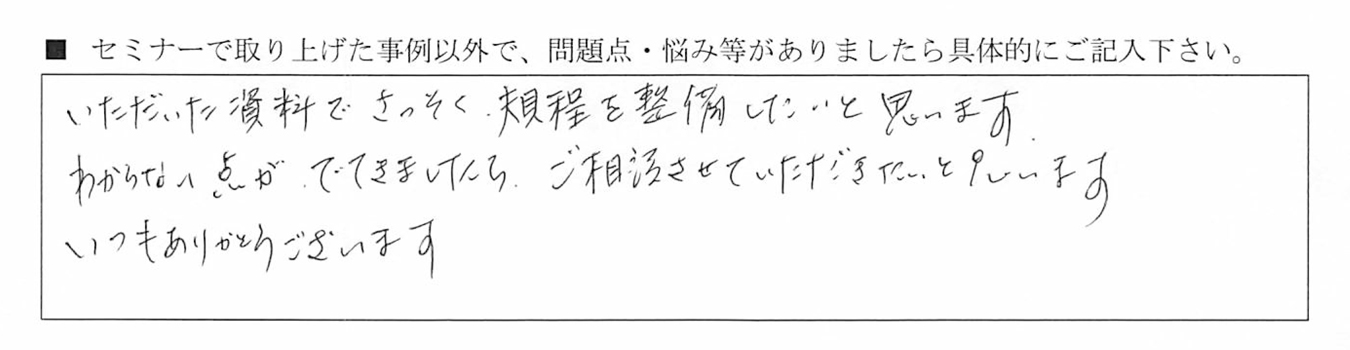 ■ セミナーで取り上げた事例以外で、問題点・悩み等がありましたら具体的にご記入下さい。
いただいた資料でさっそく、規程を整備したいと思います。
わからない点が、でてきましたら、ご相談させていただきたいと思います
いつもありがとうございます